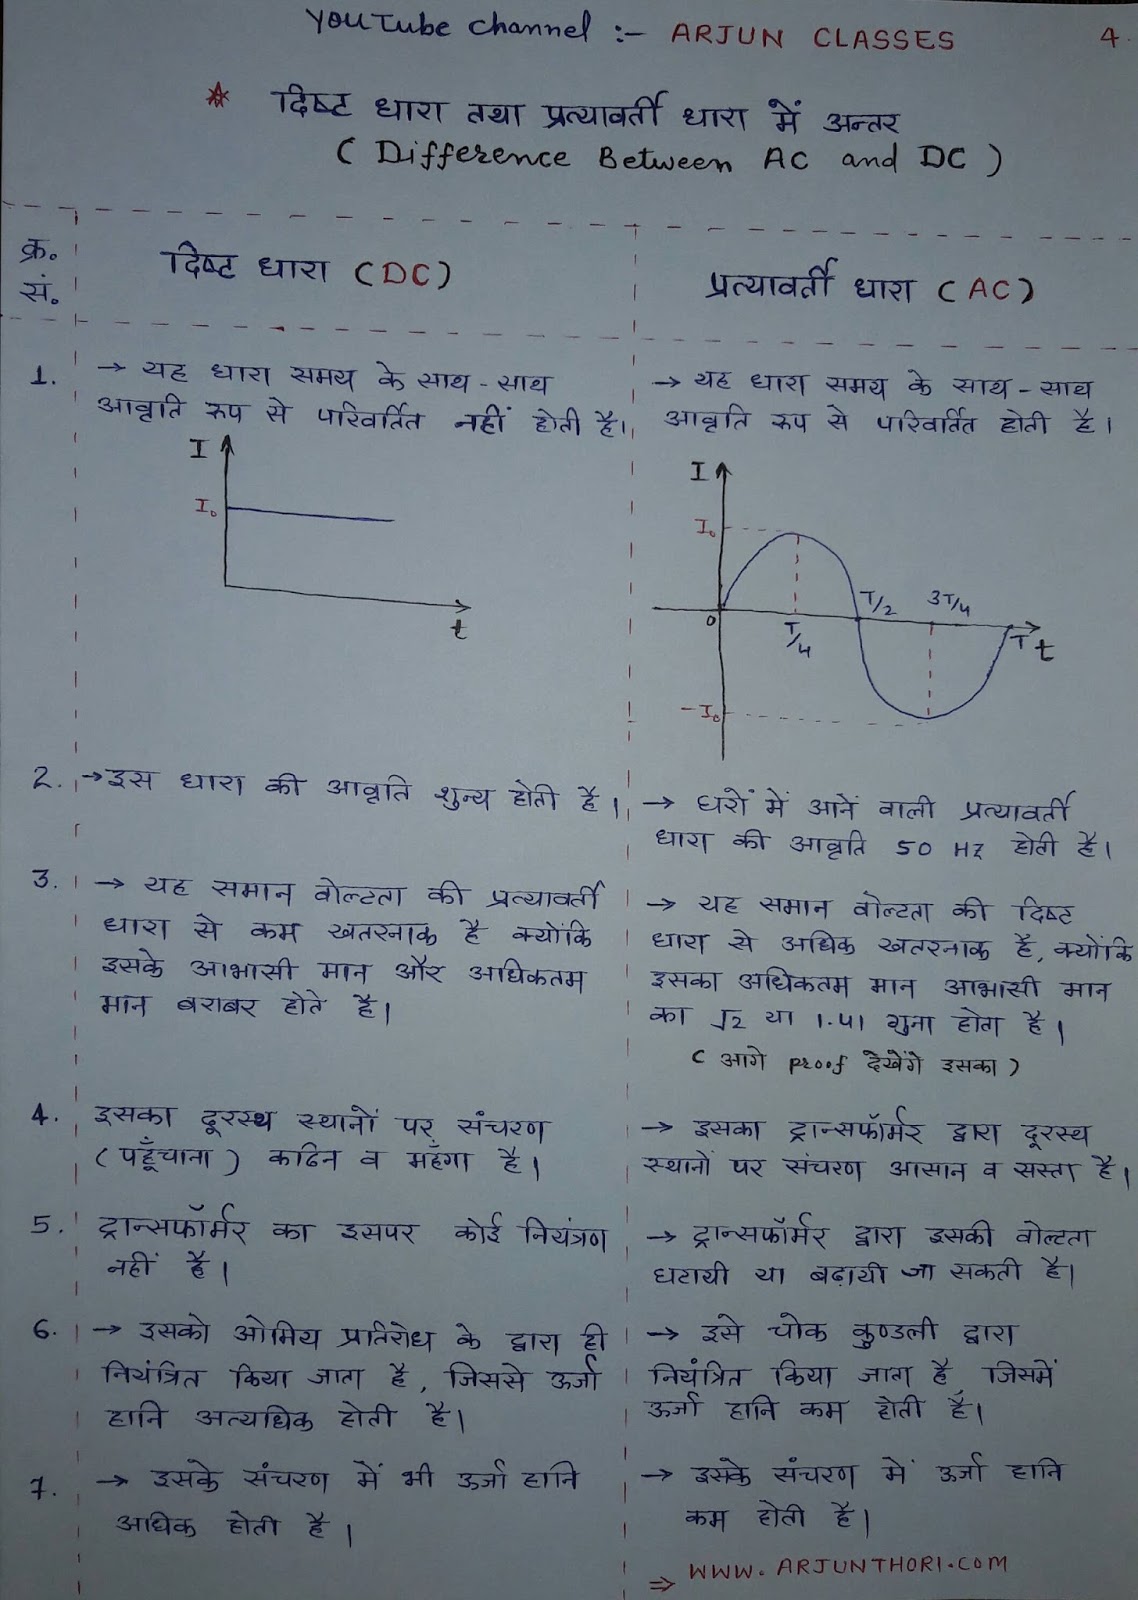 YouTube channel :- ARJUN CLASSES
4.
* दिष्ट धारा तथा प्रत्यावर्ती धारा में अन्तर
( Difference Between AC and DC )
क्र.
सं.
दिष्ट धारा (DC)
प्रत्यावर्ती धारा (AC)
1.
→ यह धारा समय के साथ-साथ
आवृति रूप से परिवर्तित नहीं होती है।
I
I₀
t
→ यह धारा समय के साथ-साथ
आवृति रूप से परिवर्तित होती है।
I
I₀
0
T/4
T/2
3T/4
T
t
-I₀
2.
→ इस धारा की आवृति शुन्य होती है।
→ घरों में आनें वाली प्रत्यावर्ती
धारा की आवृति 50 Hz होती है।
3.
→ यह समान वोल्टता की प्रत्यावर्ती
धारा से कम खतरनाक है क्योंकि
इसके आभासी मान और अधिकतम
मान बराबर होते है।
→ यह समान वोल्टता की दिष्ट
धारा से अधिक खतरनाक है, क्योंकि
इसका अधिकतम मान आभासी मान
का √2 या 1.41 गुना होता है।
( आगे proof देखेंगे इसका )
4.
इसका दूरस्थ स्थानों पर संचरण
(पहूँचाना) कठिन व महँगा है।
→ इसका ट्रान्सफॉर्मर द्वारा दूरस्थ
स्थानों पर संचरण आसान व सस्ता है।
5.
ट्रान्सफॉर्मर का इसपर कोई नियंत्रण
नहीं है।
→ ट्रान्सफॉर्मर द्वारा इसकी वोल्टता
घटायी या बढ़ायी जा सकती है।
6.
→ इसको ओमिय प्रतिरोध के द्वारा ही
नियंत्रित किया जाता है, जिससे ऊर्जा
हानि अत्यधिक होती है।
→ इसे चोक कुण्डली द्वारा
नियंत्रित किया जाता है, जिसमें
ऊर्जा हानि कम होती है।
7.
→ इसके संचरण में भी ऊर्जा हानि
अधिक होती है।
→ इसके संचरण में ऊर्जा हानि
कम होती है।
⇒ WWW.ARJUNTHORI.COM